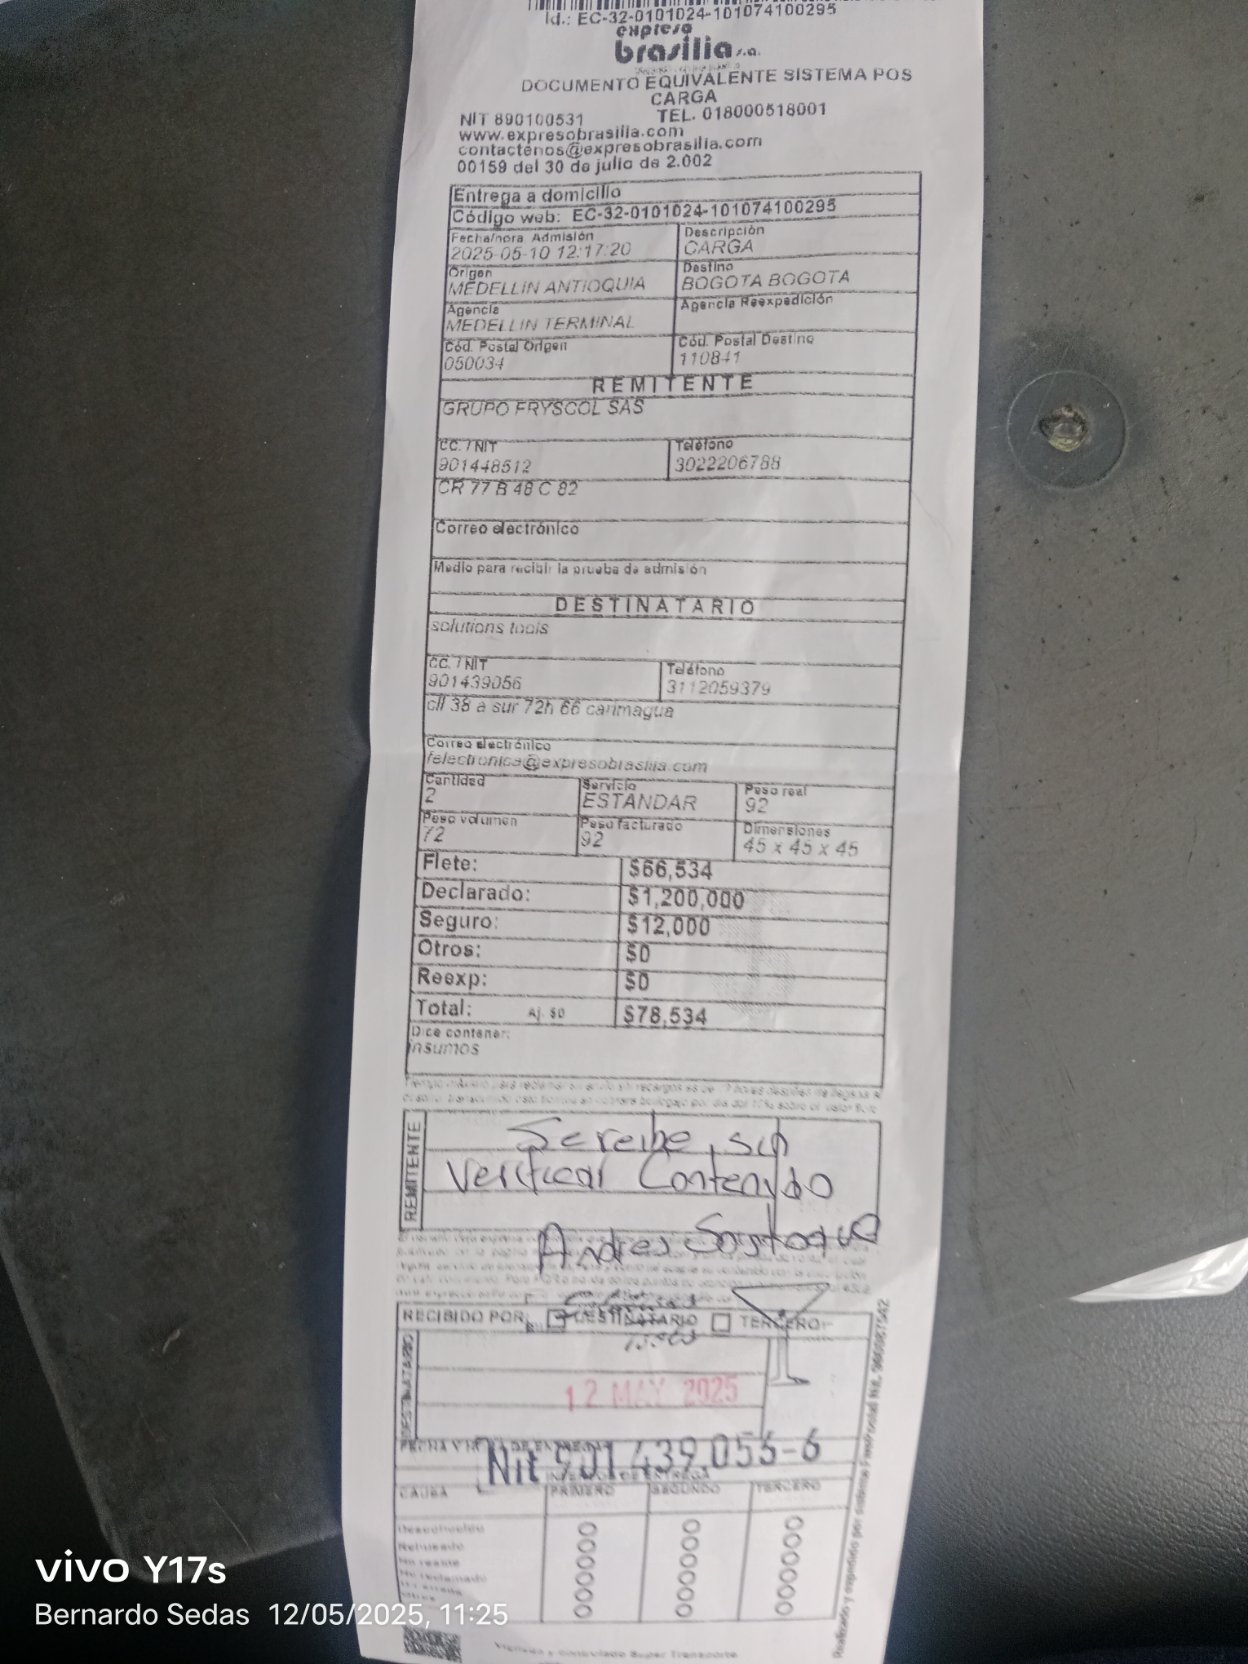 Id.: EC-32-0101024-101074100295
expreso
brasilia s.a.
DOCUMENTO EQUIVALENTE SISTEMA POS
CARGA
NIT 890100531 TEL. 018000518001
www.expresobrasilia.com
contactenos@expresobrasilia.com
00159 del 30 de julio de 2.002
Entrega a domicilio
Código web: EC-32-0101024-101074100295
Fecha/hora Admisión Descripción
2025-05-10 12:17:20 CARGA
Origen Destino
MEDELLIN ANTIOQUIA BOGOTA BOGOTA
Agencia Agencia Reexpedición
MEDELLIN TERMINAL
Cód. Postal Origen Cód. Postal Destino
050034 110841
REMITENTE
GRUPO FRYSCOL SAS
CC. / NIT Teléfono
901448512 3022206788
CR 77 B 48 C 82
Correo electrónico
Medio para recibir la prueba de admisión
DESTINATARIO
solutions tools
CC. / NIT Teléfono
901439056 3112059379
cll 38 a sur 72h 66 carimagua
Correo electrónico
felectronica@expresobrasilia.com
Cantidad Servicio Peso real
2 ESTANDAR 92
Peso volumen Peso facturado Dimensiones
72 92 45 x 45 x 45
Flete: $66,534
Declarado: $1,200,000
Seguro: $12,000
Otros: $0
Reexp: $0
Total: Aj. $0 $78,534
Dice contener:
insumos
REMITENTE
Se reibe, sin
Verificar Contenido
Andres Sastoque
RECIBIDO POR: DESTINATARIO TERCERO
DESTINATARIO
12 MAY 2025
Nit 901.439.056-6
CAUSA PRIMERO SEGUNDO TERCERO
Desconocido
Rehusado
No reside
No reclamado
Vigilado y controlado Super Transporte
vivo Y17s
Bernardo Sedas 12/05/2025, 11:25